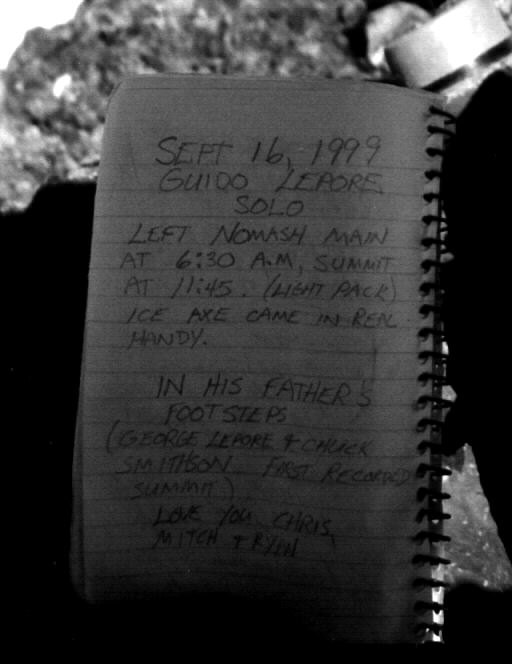 SEPT 16, 1999
GUIDO LEPORE
SOLO
LEFT NOMASH MAIN
AT 6:30 A.M, SUMMIT
AT 11:45. (LIGHT PACK)
ICE AXE CAME IN REAL
HANDY.
IN HIS FATHER'S
FOOTSTEPS
(GEORGE LEPORE & CHUCK
SMITHSON FIRST RECORDED
SUMMIT)
LOVE YOU CHRIS,
MITCH & RYAN